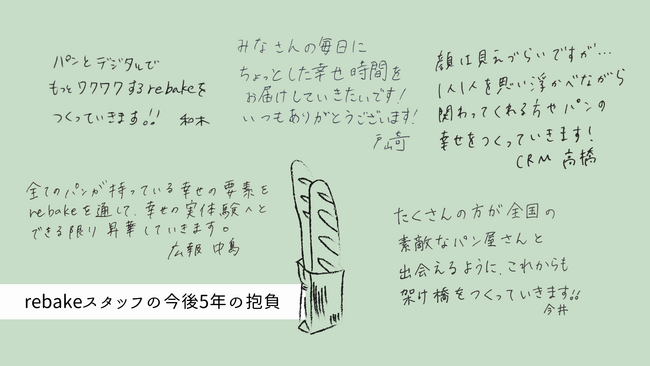 パンとデジタルで
もっとワクワクするrebakeを
つくっていきます!! 和木
みなさんの毎日に
ちょっとした幸せ時間を
お届けしていきたいです!
いつもありがとうございます!
戸崎
顔は見えづらいですが…
1人1人を思い浮かべながら
関わってくれる方やパンの
幸せをつくっていきます!
CRM 高橋
全てのパンが持っている幸せの要素を
rebakeを通して、幸せの実体験へと
できる限り昇華していきます。
広報 中島
たくさんの方が全国の
素敵なパン屋さんと
出会えるように、これからも
架け橋をつくっていきます!!
今井
rebakeスタッフの今後5年の抱負